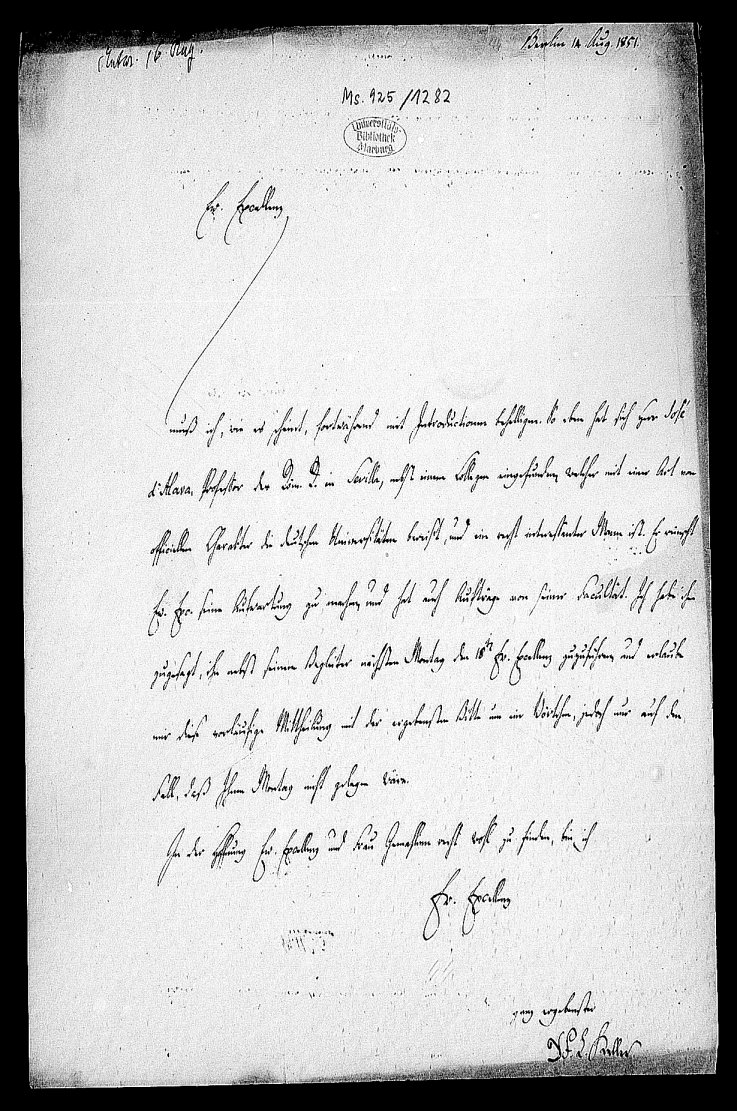 Berlin 14 Aug. 1851.
16 Aug.
Ms. 925/1282
Universitäts-
Bibliothek
Marburg
Ew. Excellenz
muß ich, wie es scheint, fortwährend mit Introductionen behelligen. So eben hat sich zwar José
d'Alava, Professor des Röm. R. in Sevilla, nebst einem Collegen eingefunden, welcher mit einer Art von
officiellem Charakter die deutschen Universitäten bereist, und ein recht interessanter Mann ist. Er wünscht
Ew. Exc. seine Aufwartung zu machen, und hat auch Aufträge von seiner Facultät. Ich habe ihm
zugesagt, ihn nebst seinem Begleiter nächsten Montag den 18ten Ew. Excellenz zuzuführen, und erlaube
mir diese vorläufige Mittheilung mit der ergebensten Bitte um ein Wörtchen, jedoch nur auf den
Fall, daß Ihnen Montag nicht gelegen wäre.
In der Hoffnung Ew. Excellenz und Frau Gemahlinn recht wohl zu finden, bin ich
Ew. Excellenz
ganz ergebenster
Dr F. L. Keller